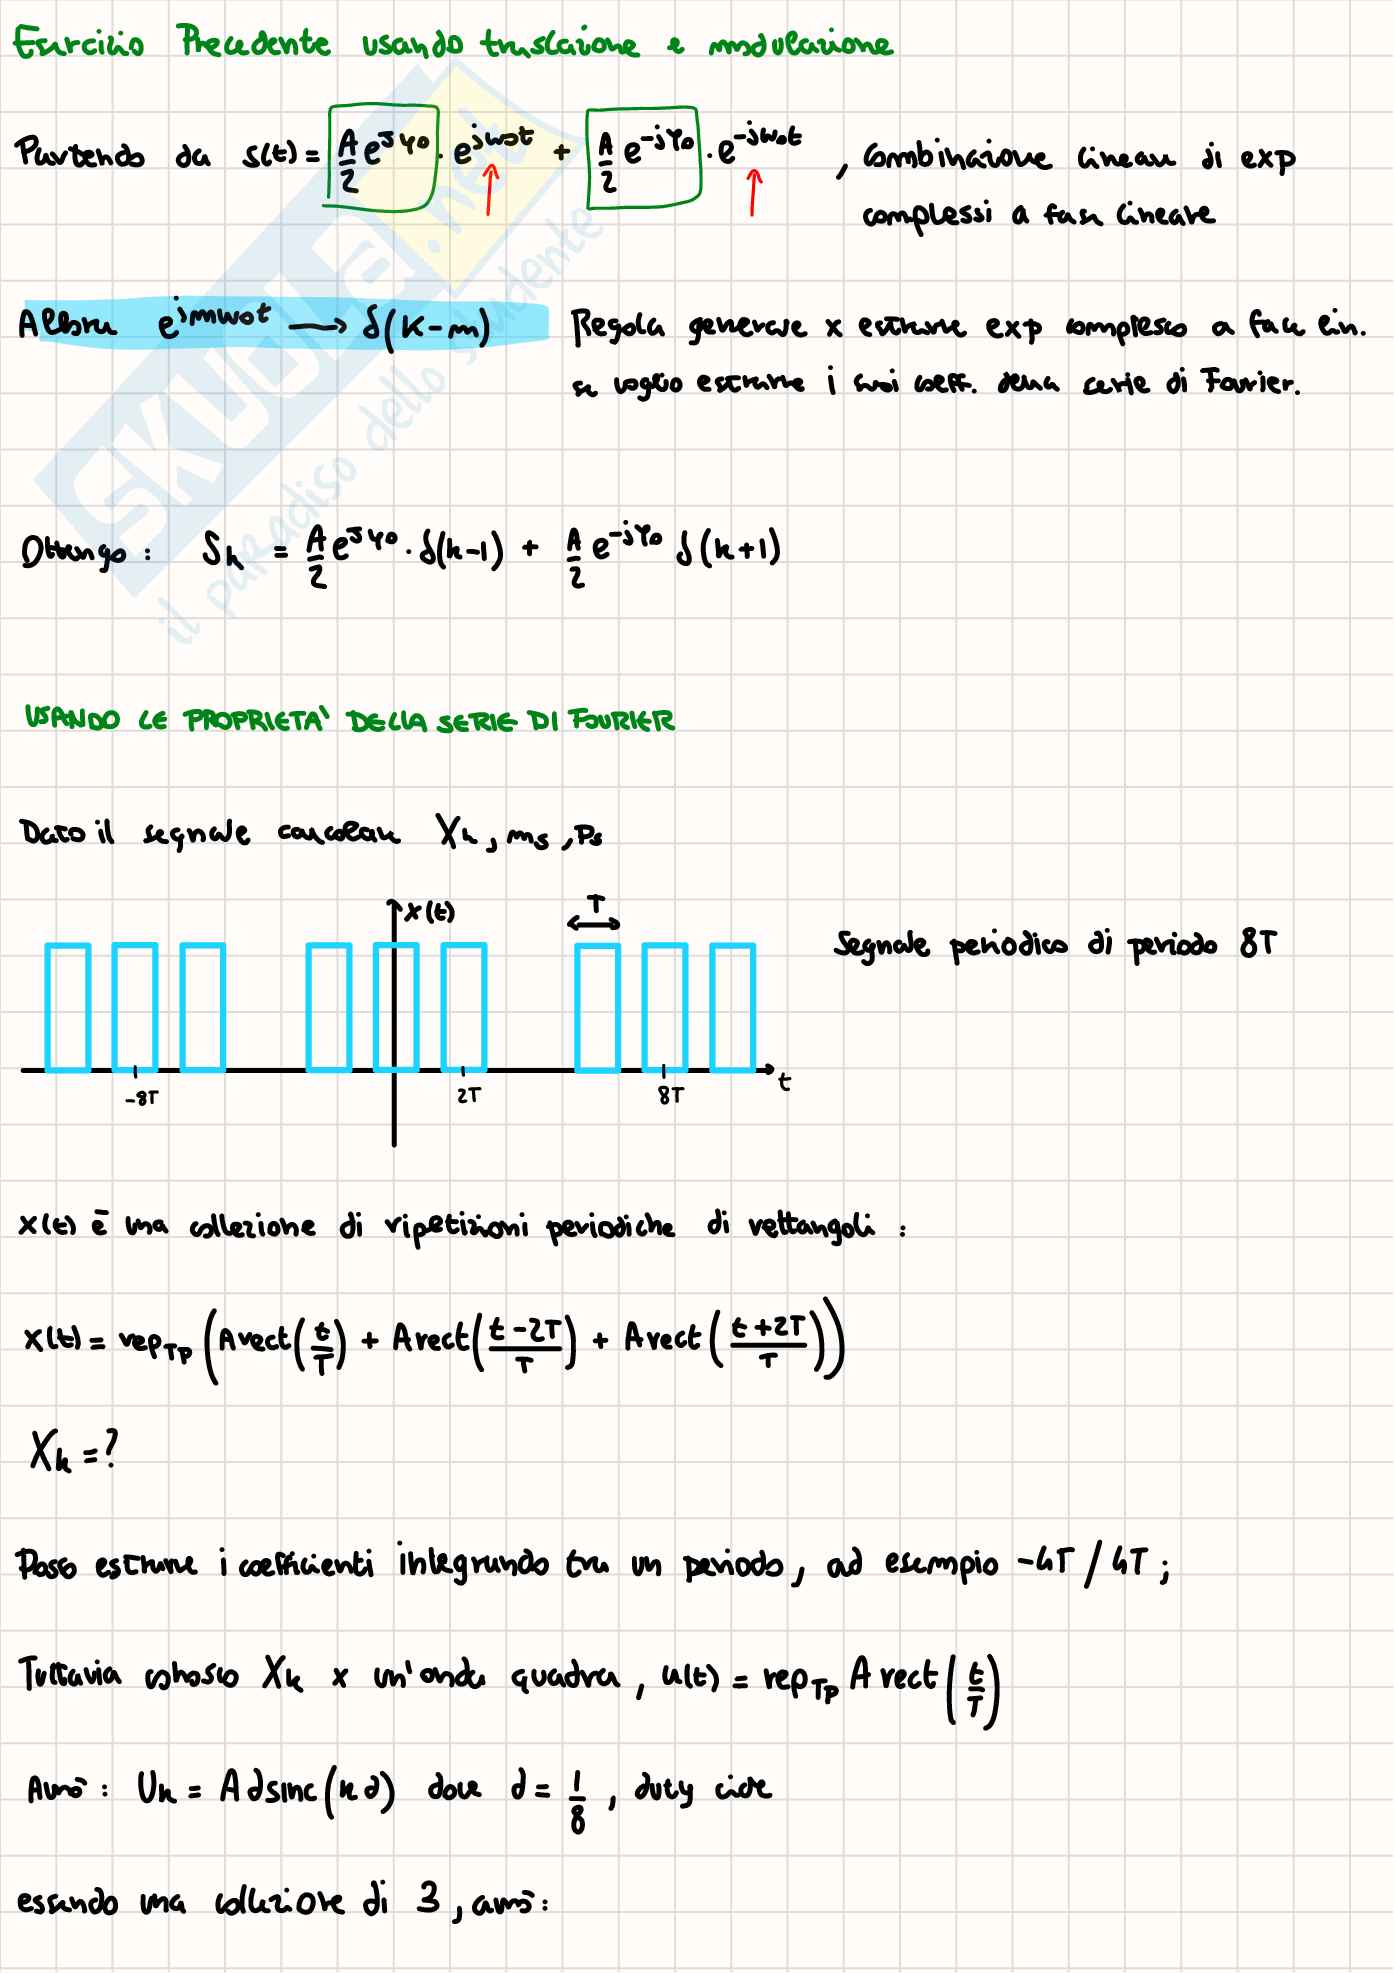 Esercizio Precedente usando traslazione e modulazione
Partendo da s(t) = A/2 e^{jφ0} · e^{jω0t} + A/2 e^{-jφ0} · e^{-jω0t} , combinazione lineare di exp
complessi a fase lineare
Allora e^{jmω0t} → δ(k-m) Regola generale x estrarre exp complesso a fase lin.
se voglio estrarre i suoi coeff. della serie di Fourier.
Ottengo : Sk = A/2 e^{jφ0} · δ(k-1) + A/2 e^{-jφ0} δ(k+1)
USANDO LE PROPRIETA' DELLA SERIE DI FOURIER
Dato il segnale calcolare Xk, ms, Ps
x(t)
T
Segnale periodico di periodo 8T
-8T 2T 8T t
x(t) è una collezione di ripetizioni periodiche di rettangoli :
x(t) = rep_{Tp} ( A rect(t/T) + A rect((t-2T)/T) + A rect((t+2T)/T) )
Xk = ?
Posso estrarre i coefficienti integrando tra un periodo, ad esempio -4T / 4T ;
Tuttavia conosco Xk x un'onda quadra, u(t) = rep_{Tp} A rect(t/T)
Avrò : Uk = A d sinc(k d) dove d = 1/8 , duty cicle
essendo una collezione di 3, avrò :
SKUOLA.net
il paradiso dello studente